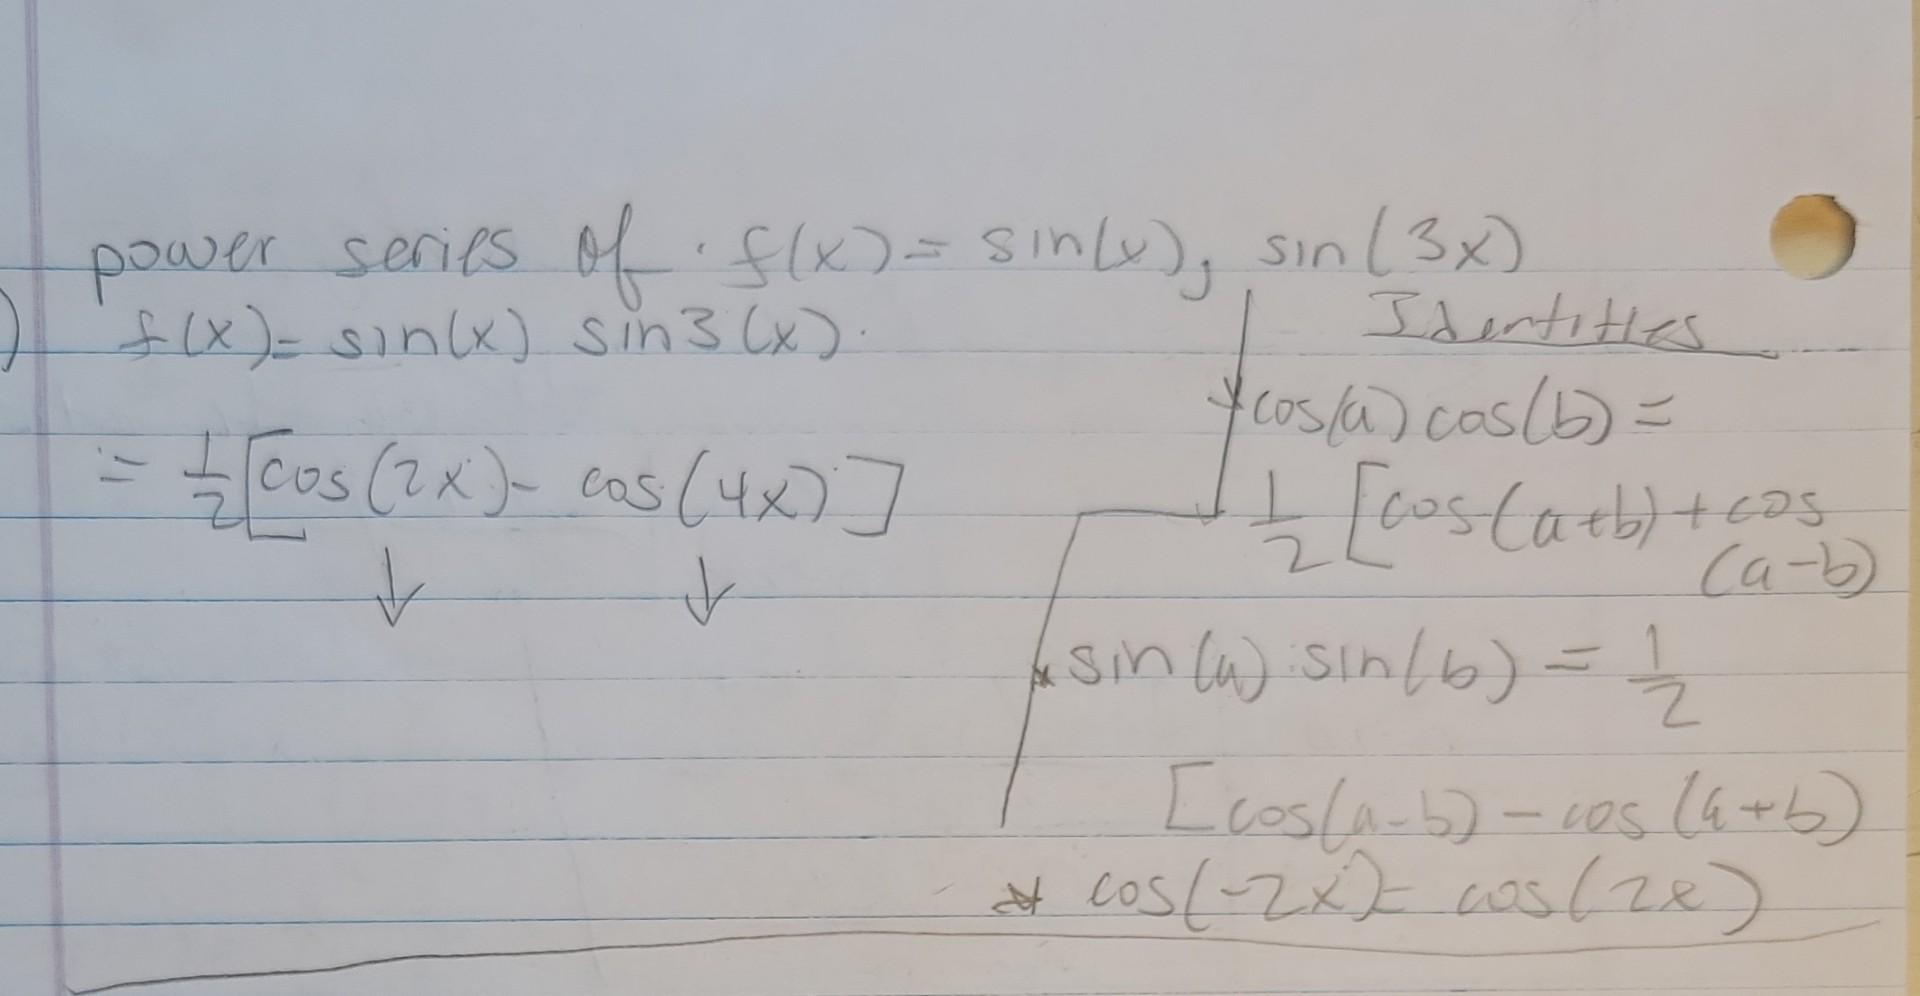 power series of · f(x) = sin(x), sin(3x)
) f(x) = sin(x) sin3(x).
= 1/2 [cos(2x) - cos(4x)]
↓ ↓
Identities
* cos(a) cos(b) =
1/2 [cos(a+b) + cos
(a-b)
* sin(a) · sin(b) = 1/2
[cos(a-b) - cos(a+b)
* cos(-2x) = cos(2x)